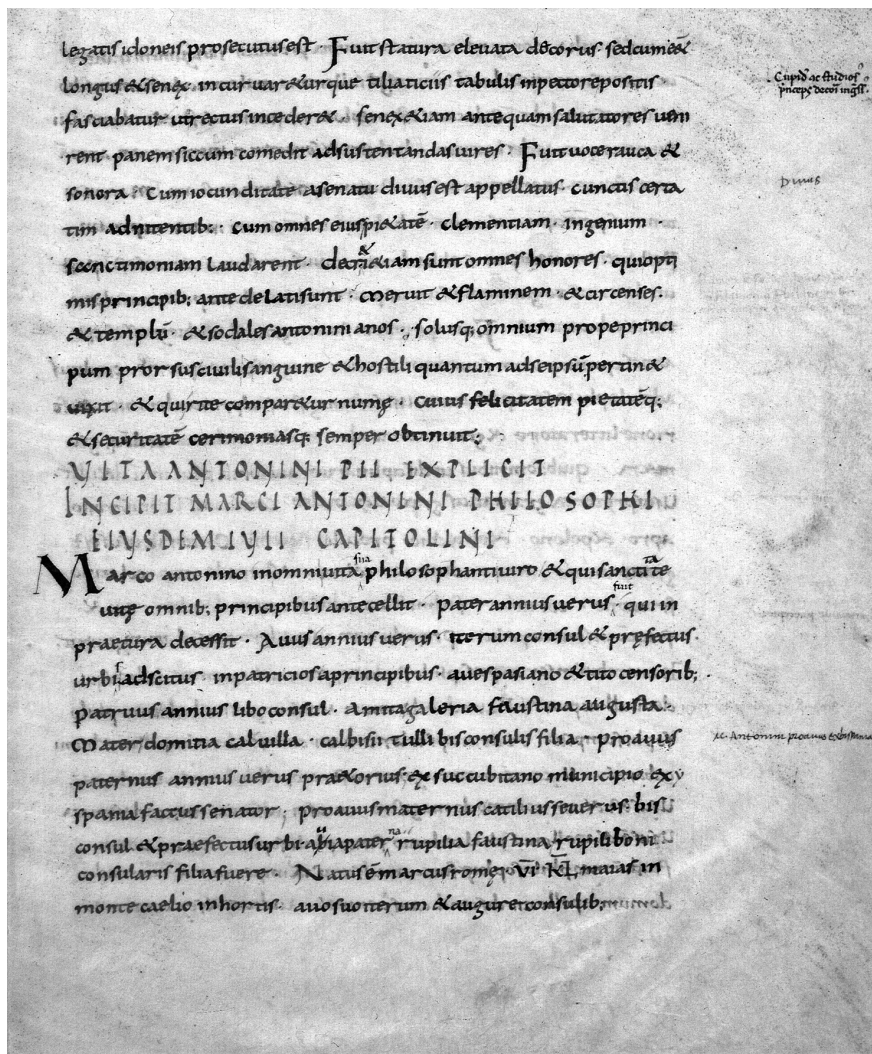 legatis idoneis prosecutus est · Fuit statura elevata decorus · sed cum eẽt
longus & senex incurvar&urque tiliaticiis tabulis inpectore positis
fasciabatur ut rectus inceder& · senex &iam antequam salutatores veni
rent panem siccum comedit ad sustentandas vires · Fuit voce rauca &
sonora · Cum iocunditate a senatu divus est appellatus · cunctis certa
tim adnitentib; · Cum omnes eius pi&atẽ · clementiam · ingenium ·
sanctimoniam laudarent · decr&a &iam sunt omnes honores · qui opti
mis principib; ante delati sunt · Meruit & flaminem · & circenses ·
& templũ · & sodales antoninianos · solusq; omnium prope princi
pum prorsus civili sanguine & hostili quantum ad se ipsũ pertin&
vixit · & qui rite compar&ur numę · Cuius felicitatem pietatẽq;
& securitatẽ cerimoniasq; semper obtinuit;
VITA ANTONINI PII EXPLICIT
INCIPIT MARCI ANTONINI PHILOSOPHI
EIUSDEM IVLII CAPITOLINI
Marco antonino in omni vita sua philosophanti viro & qui sanctitate
vitę omnib; principibus antecellit · pater annius verus fuit qui in
praetura decessit · Avus annius verus · iterum consul & pręfectus ·
urbi adscitus in patricios a principibus · a vespasiano & tito censorib; ·
patruus annius libo consul · Amita galeria faustina augusta ·
Mater domitia calvilla · calbisii tulli bis consulis filia · proavus
paternus annius verus pra&orius · ex succubitano municipio exy
spania factus senator · proavus maternus catilius severus · bis
consul & praefectus urbi · avia paterna rupilia faustina rupili boni
consularis filia fuere · Natus ẽ marcus romę · VI KL maias in
monte caelio in hortis · avo suo iterum & augure consulib;
Cupid' ac studios'
Divus